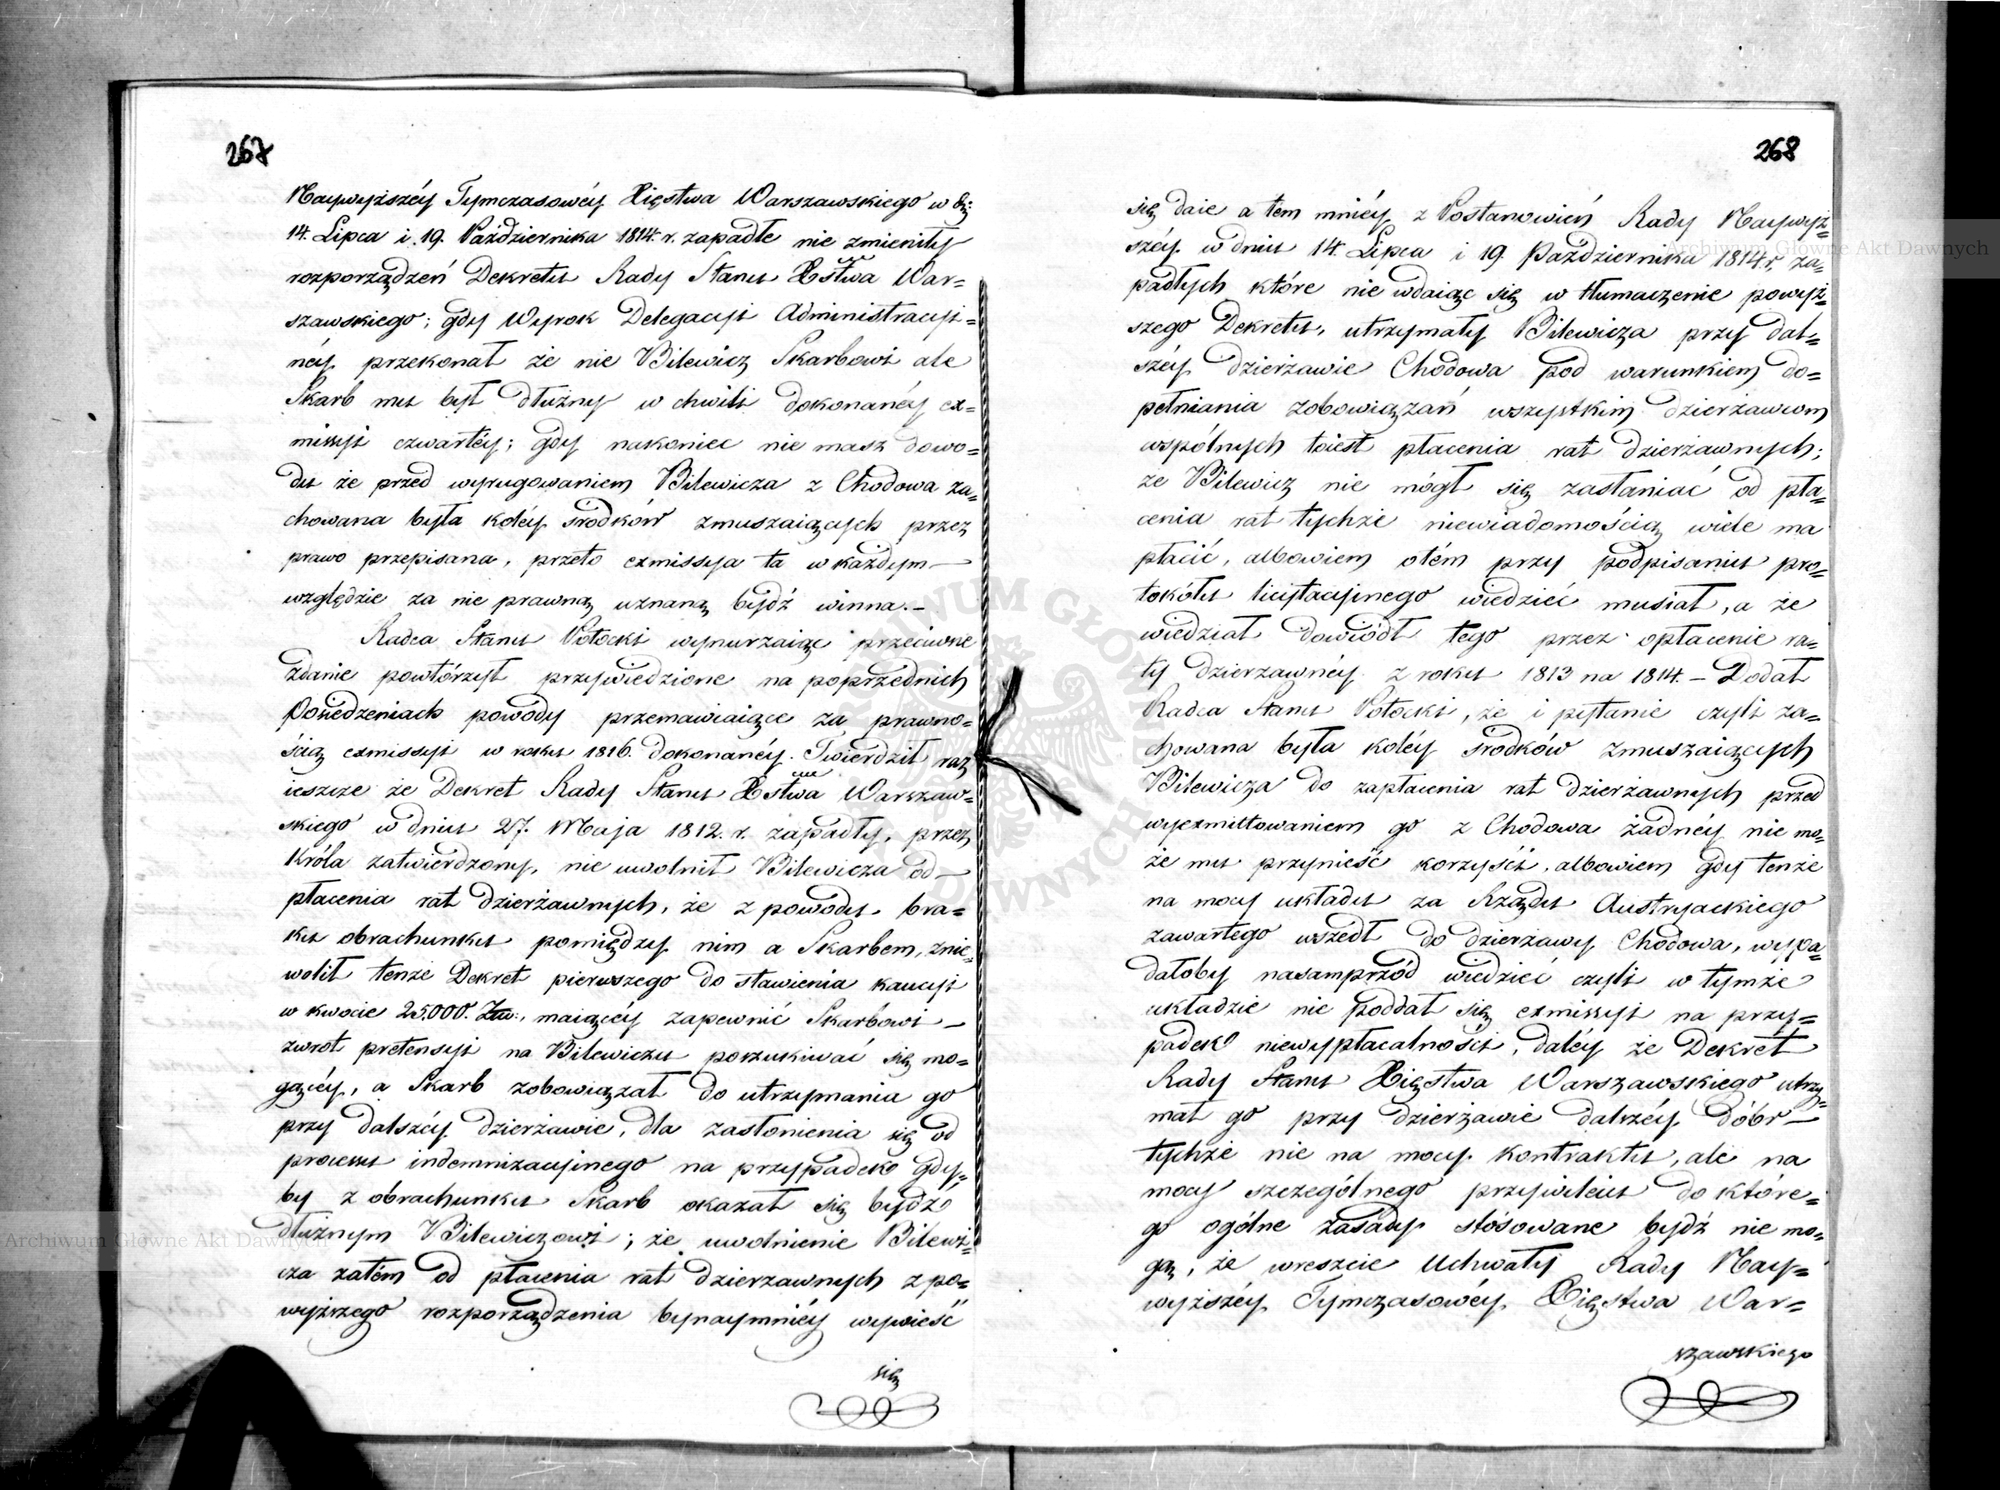 267
Naywyższéy Tymczasowéy Xięstwa Warszawskiego w d:
14. Lipca i. 19. Października 1814. r. zapadłe nie zmieniły
rozporządzeń Dekretu Rady Stanu Xstwa War=
szawskiego; gdy Wyrok Delegacyi Administracyi=
néy przekonał że nie Bilewicz Skarbowi ale
Skarb mu był dłużny w chwili dokonanéy ex=
missyi czwartéy; gdy nakoniec nie masz dowo=
du że przed wyrugowaniem Bilewicza z Chodowa za=
chowana była koléy środków zmuszaiących przez
prawo przepisana, przeto exmissya ta w każdym —
względzie za nie prawną uznaną bydź winna. —
Radca Stanu Potocki wynurzaiąc przeciwne
zdanie powtórzył przywiedzione na poprzednich
Posiedzeniach powody przemawiaiące za prawno=
ścią exmissyi w roku 1816. dokonanéy. Twierdził raz
ieszcze że Dekret Rady Stanu Xstwa Warszaw=
skiego w dniu 27. Maja 1812. r. zapadły, przez
Króla zatwierdzony, nie uwolnił Bilewicza od —
płacenia rat dzierżawnych, że z powodu bra=
ku obrachunku pomiędzy nim a Skarbem, znie=
wolił tenże Dekret pierwszego do stawienia kaucyi
w kwocie 25.000. Złw:, maiącéy zapewnić Skarbowi —
zwrot pretensyi na Bilewiczu poszukiwać się mo=
gącéy, a Skarb zobowiązał do utrzymania go
przy dalszéy dzierżawie, dla zasłonienia się od
processu indemnizacyinego na przypadek gdy=
by z obrachunku Skarb okazał się bydź
dłużnym Bilewiczowi; że uwolnienie Bilewi=
cza zatém od płacenia rat dzierzawnych z po=
wyższego rozporządzenia bynaymniéy wywieść
się
268
się daie a tem mniéy z Postanowień Rady Naywyż=
széy w dniu 14. Lipca i 19. Października 1814. r. za=
padłych które nie wdaiąc się w tłumaczenie powyż=
szego Dekretu, utrzymały Bilewicza przy dal=
széy dzierżawie Chodowa pod warunkiem do=
pełniania zobowiązań wszystkim dzierżawcom
wspólnych toiest płacenia rat dzierżawnych;
że Bilewicz nie mógł się zasłaniać od pła=
cenia rat tychże niewiadomością wiele ma
płacić, albowiem otém przy podpisaniu pro=
tokółu licytacyinego wiedzieć musiał, a że
wiedział dowiódł tego przez opłacenie ra=
ty dzierzawnéy z roku 1813 na 1814. — Dodał
Radca Stanu Potocki, że i pytanie czyli za=
chowana była koléy środków zmuszaiących
Bilewicza do zapłacenia rat dzierżawnych przed
wyexmittowaniem go z Chodowa żadnéy nie mo=
że mu przynieść korzyści, albowiem gdy tenże
na mocy układu za Rządu Austryackiego
zawartego wszedł do dzierżawy Chodowa, wypa=
dałoby nasamprzód wiedzieć czyli w tymże
układzie nie poddał się exmissyi na przy=
padek niewypłacalności, daléy że Dekret
Rady Stanu Xięstwa Warszawskiego utrzy=
mał go przy dzierżawie dalszéy dóbr —
tychże nie na mocy kontraktu, ale na
mocy szczególnego przywileiu do które=
go ogólne zasady stósowane bydź nie mo=
gą, że wreszcie Uchwały Rady Nay=
wyższéy Tymczasowéy Xięstwa War=
szawskiego
Archiwum Główne Akt Dawnych
Archiwum Główne Akt Dawnych
ARCHIWUM GŁÓWNE AKT DAWNYCH